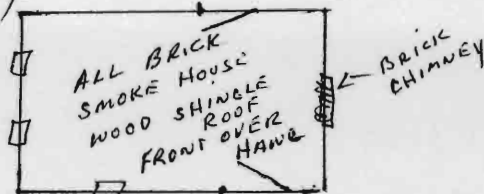 ALL BRICK
SMOKE HOUSE
WOOD SHINGLE
ROOF
FRONT OVER
HANG
BRICK
CHIMNEY